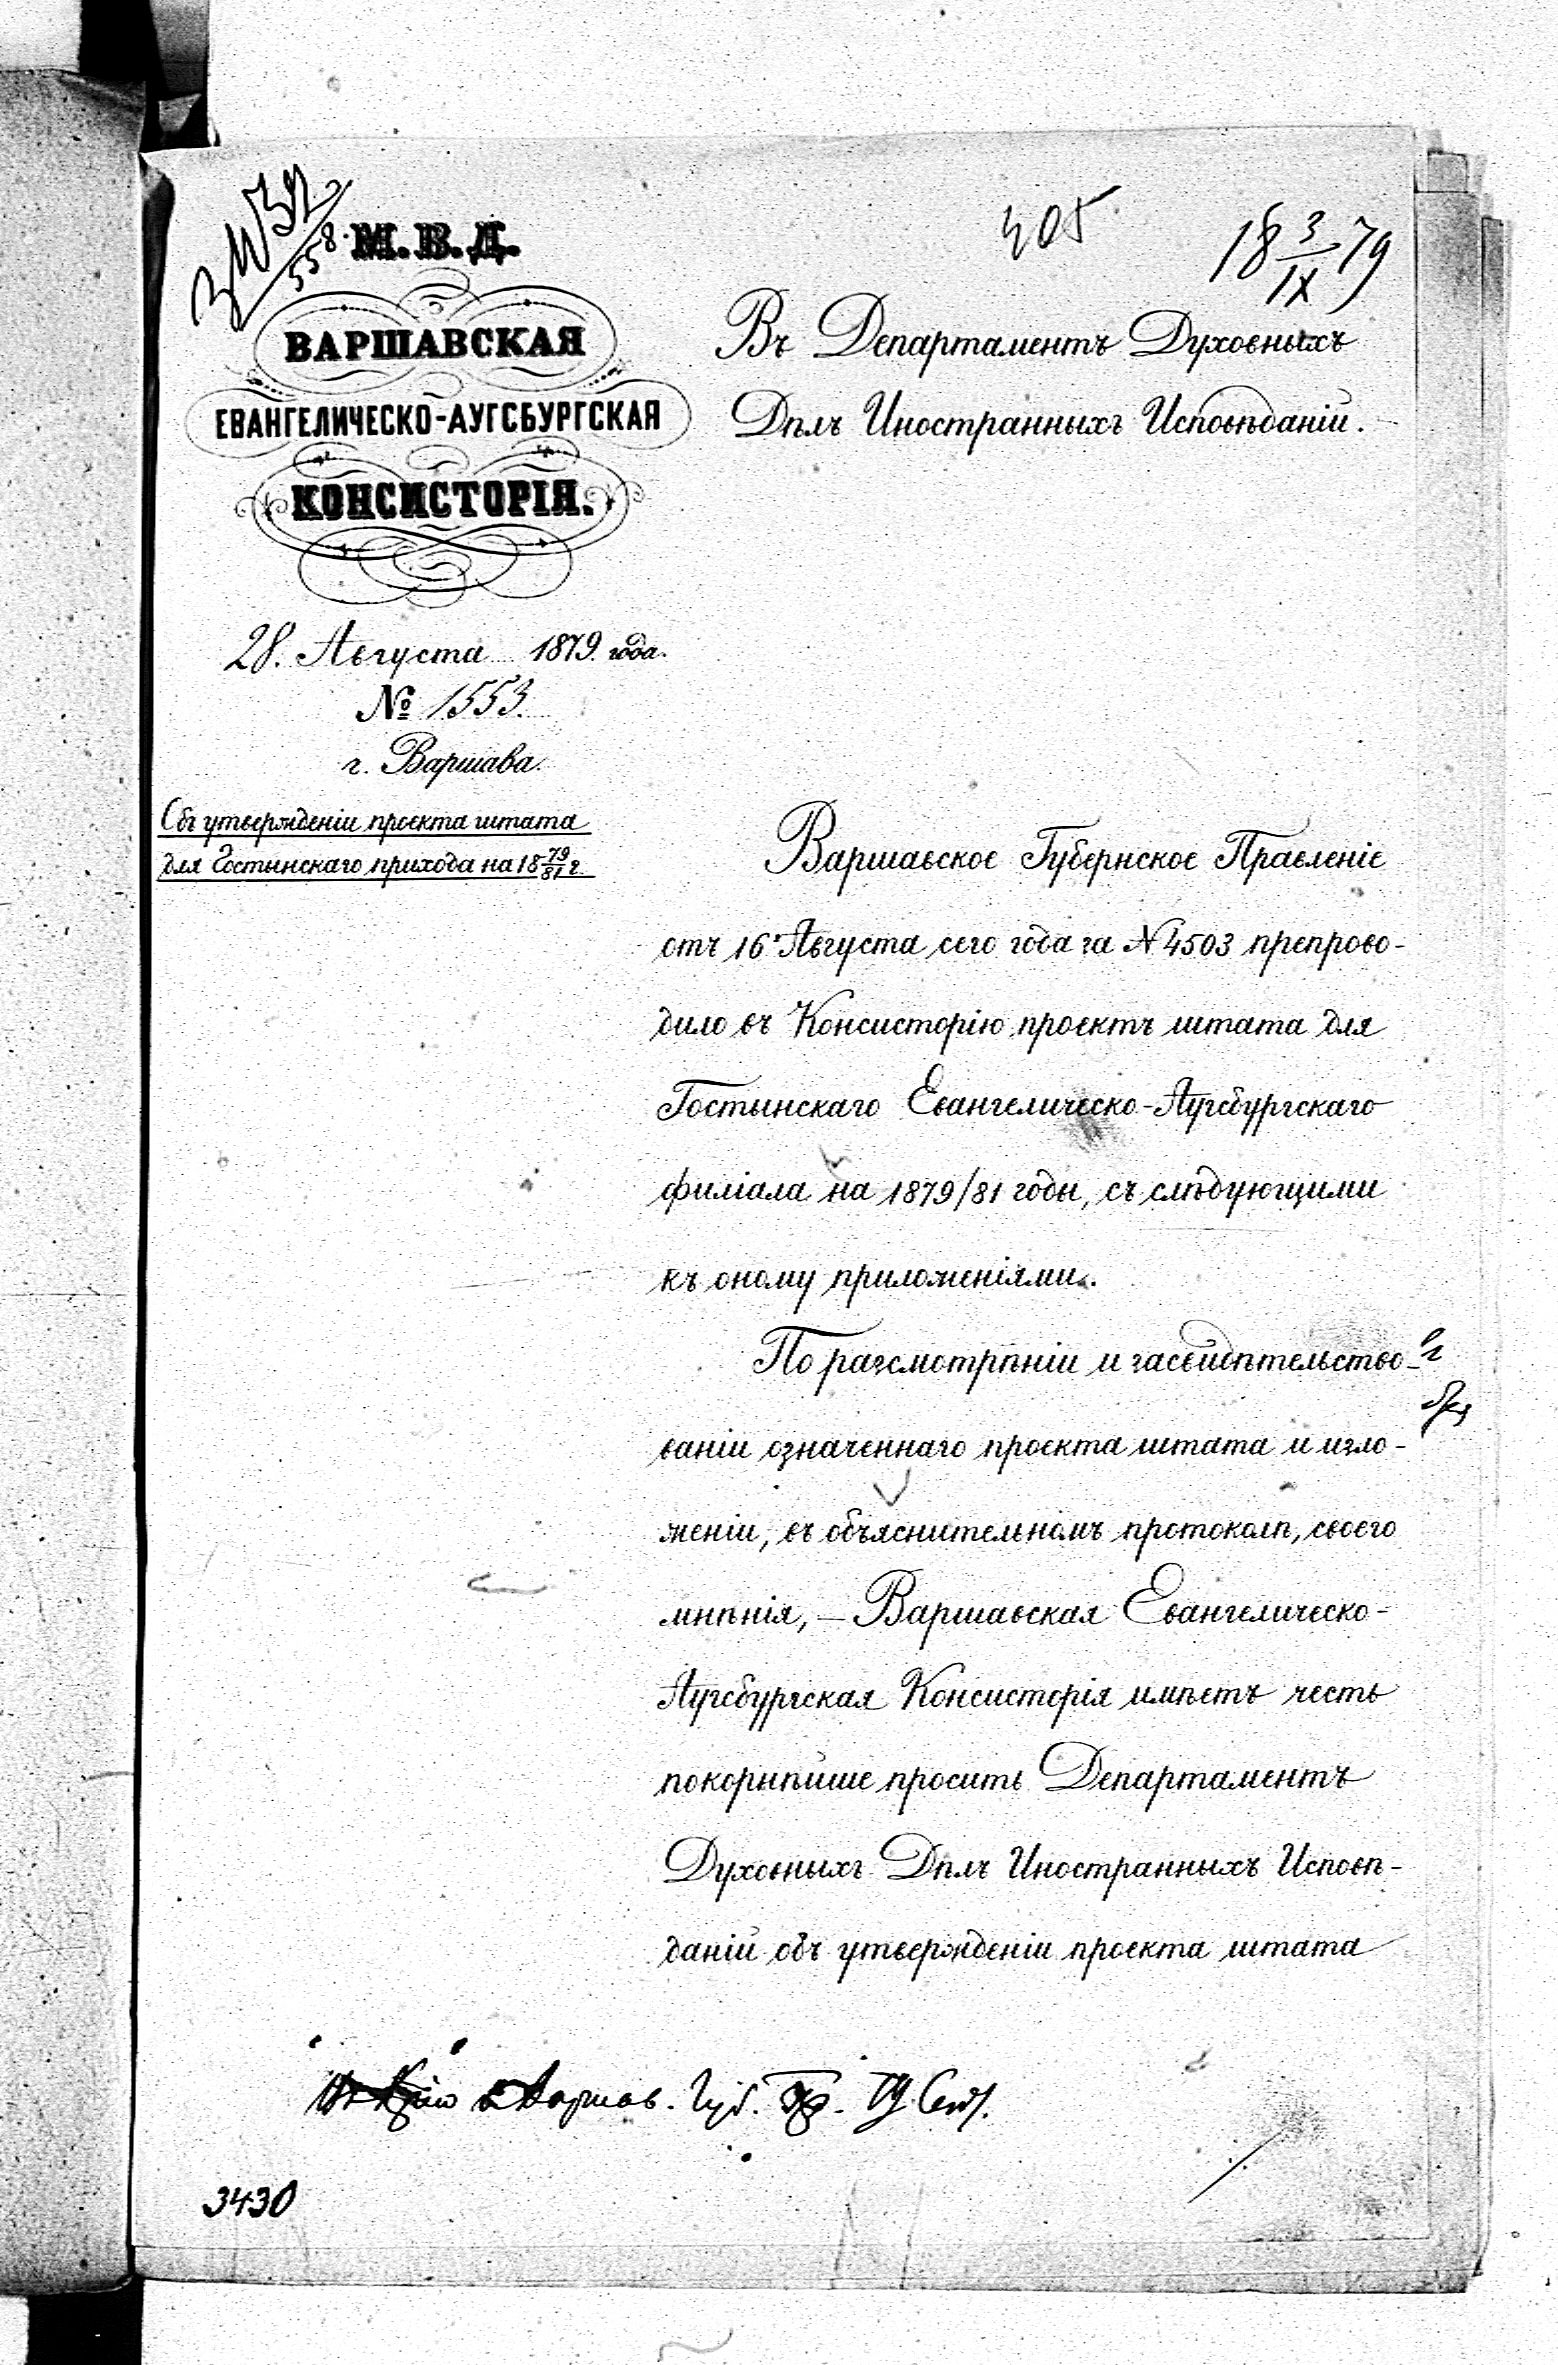 558.
405
18 3/IX 79
М. В. Д.
ВАРШАВСКАЯ
ЕВАНГЕЛИЧЕСКО-АУГСБУРГСКАЯ
КОНСИСТОРІЯ.
28. Августа 1879. года.
№ 1553.
г. Варшава.
Объ утвержденіи проекта штата
для Гостынскаго прихода на 18 79/81 г.
Въ Департаментъ Духовныхъ
Дѣлъ Иностранныхъ Исповѣданій.
Варшавское Губернское Правленіе
отъ 16 Августа сего года за № 4503 препрово-
дило въ Консисторію проектъ штата для
Гостынскаго Евангелическо-Аугсбургскаго
филіала на 1879/81 годы, съ слѣдующими
къ оному приложеніями.
По разсмотрѣніи и засвидѣтельство-
ваніи означеннаго проекта штата и изло-
женіи, въ объяснительномъ протоколѣ, своего
мнѣнія, — Варшавская Евангелическо-
Аугсбургская Консисторія имѣетъ честь
покорнѣйше просить Департаментъ
Духовныхъ Дѣлъ Иностранныхъ Исповѣ-
даній объ утвержденіи проекта штата
Варшав. Губ. Пр. Сент.
3430